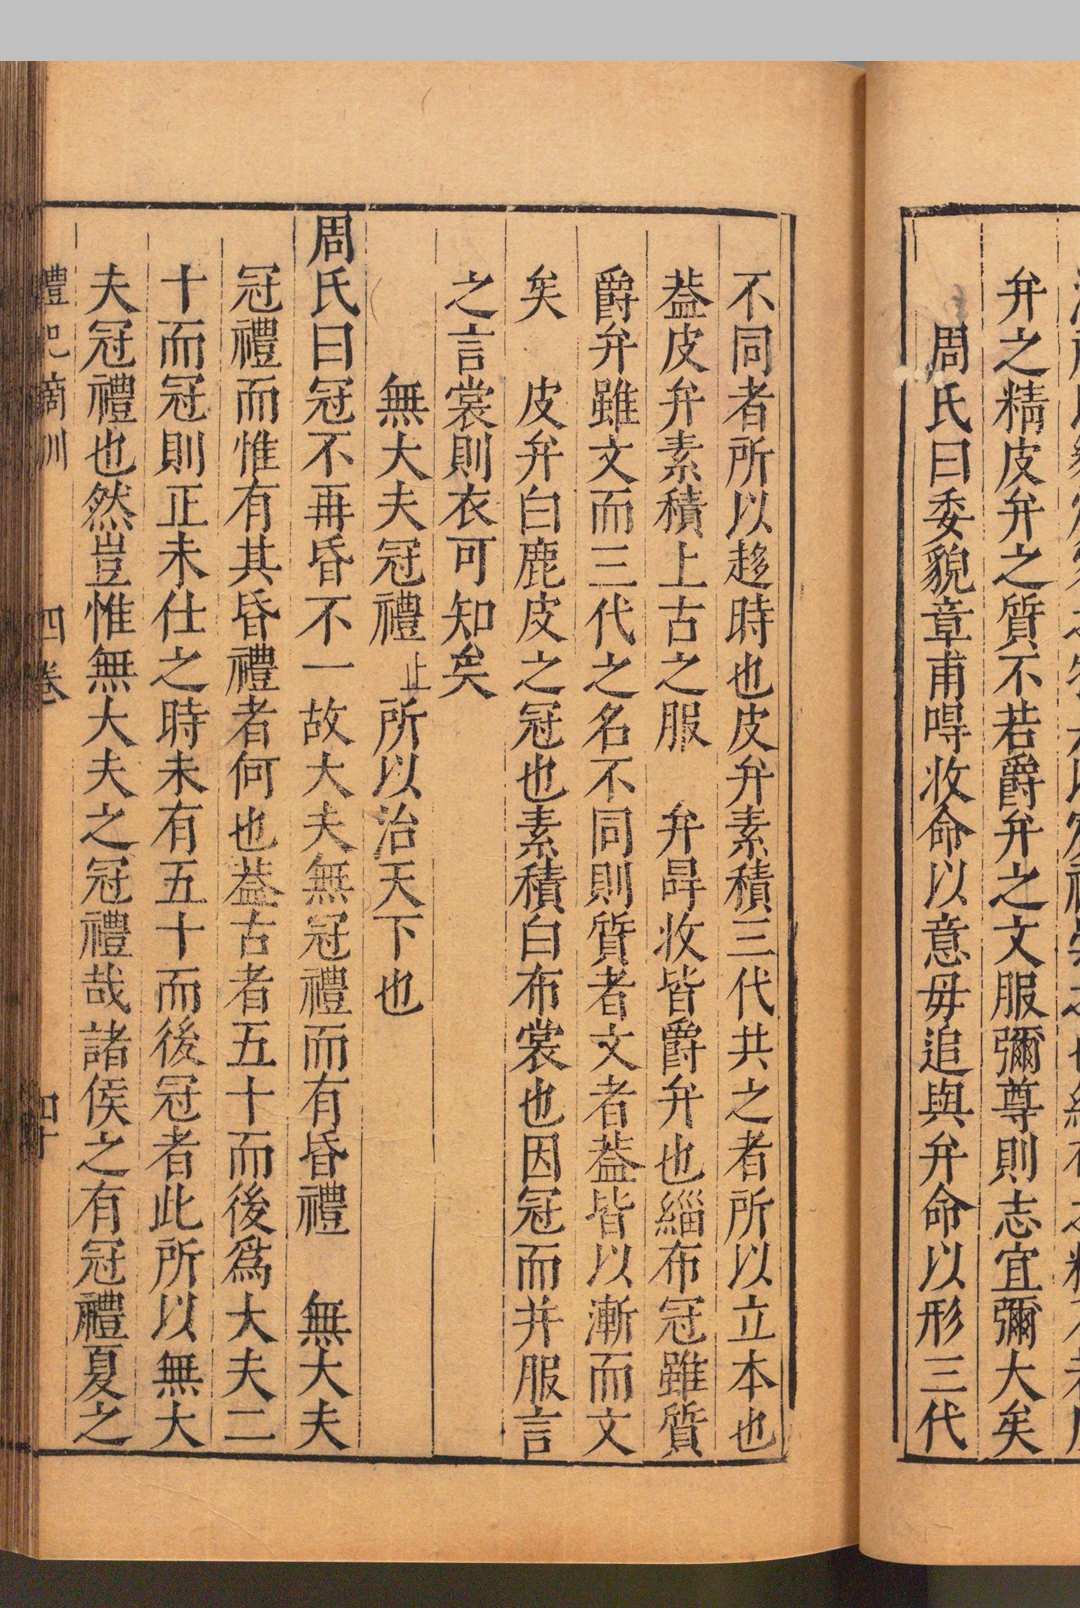 弁之精皮弁之質不若爵弁之文服彌尊則志宜彌大矣
周氏曰委貌章甫哻收命以意毋追與弁命以形三代
不同者所以趍時也皮弁素積三代共之者所以立本也
葢皮弁素積上古之服　弁冔收皆爵弁也緇布冠雖質
爵弁雖文而三代之名不同則質者文者葢皆以漸而文
矣　皮弁白鹿皮之冠也素積白布裳也因冠而并服言
之言裳則衣可知矣
無大夫冠禮止所以治天下也
周氏曰冠不再昏不一故大夫無冠禮而有昏禮　無大夫
冠禮而惟有其昏禮者何也葢古者五十而後爲大夫二
十而冠則正未仕之時未有五十而後冠者此所以無大
夫冠禮也然豈惟無大夫之冠禮哉諸侯之有冠禮夏之
禮記 訓　四卷　四十